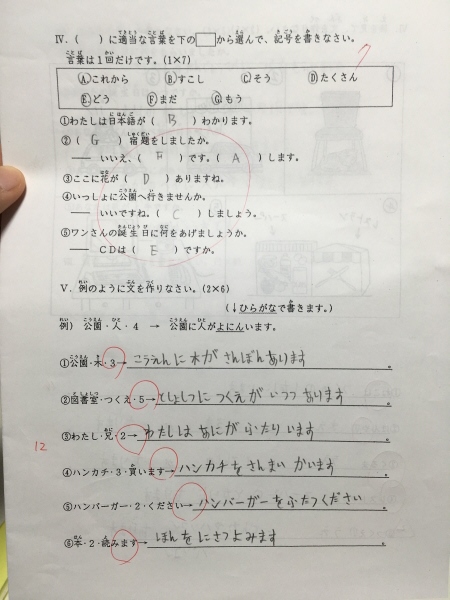 Ⅳ.（　）に適当な言葉を下の□から選んで、記号を書きなさい。
言葉は１回だけです。(1×7)
7
Ⓐこれから Ⓑすこし Ⓒそう Ⓓたくさん
Ⓔどう Ⓕまだ Ⓖもう
①わたしは日本語が（ B ）わかります。
②（ G ）宿題をしましたか。
── いいえ、（ F ）です。（ A ）します。
③ここに花が（ D ）ありますね。
④いっしょに公園へ行きませんか。
── いいですね。（ C ）しましょう。
⑤ワンさんの誕生日に何をあげましょうか。
── ＣＤは（ E ）ですか。
Ⅴ. 例のように文を作りなさい。(2×6)
(↓ひらがなで書きます。)
例) 公園・人・4 → 公園に人がよにんいます。
①公園・木・3→ こうえんに木が さんぼんあります。
②図書室・つくえ・5→ としょしつに つくえが いつつ あります。
③わたし・兄・2→ わたしは あにが ふたり います。
12
④ハンカチ・3・買います→ ハンカチを さんまい かいます。
⑤ハンバーガー・2・ください→ ハンバーガーを ふたつください。
⑥本・2・読みます→ ほんを にさつよみます。